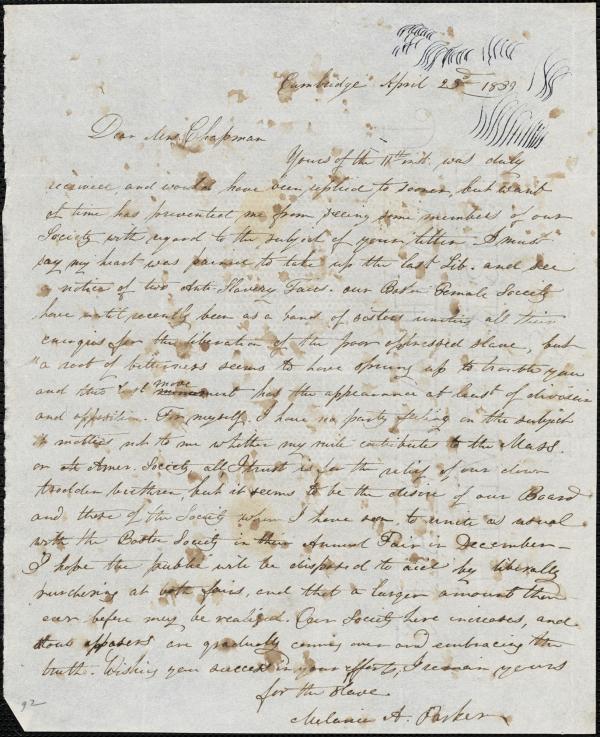 Cambridge April 23d 1839
Dear Mrs Chapman
Yours of the 11th inst. was duly
received and would have been replied to sooner, but want
of time has prevented me from seeing some members of our
Society with regard to the subject of your letter. I must
say my heart was pained to take up the last Lib. and see
a notice of two Anti Slavery Fairs. our Boston Female Society
have until recently been as a band of sisters uniting all their
energies for the liberation of the poor oppressed slave, but
"a root of bitterness seems to have sprung up to trouble you
and this last move has the appearance at least of division
and opposition. For myself, I have no party feeling on the subject
it matters not to me whether my mite contributes to the Mass.
or Amer. Society all, I trust is for the relief of our down
trodden brethren, but it seems to be the desire of our Board
and those of the Society whom I have seen, to unite as usual
with the Boston Society in their Annual Fair in December—
I hope the public will be disposed to aid by liberally
purchasing at both fairs, and that a larger amount than
ever before may be realized. Our Society here increases, and
opposers are gradually coming over and embracing the
truth. Wishing you success in your efforts, I remain yours
for the slave
Melanie A. Parker
92